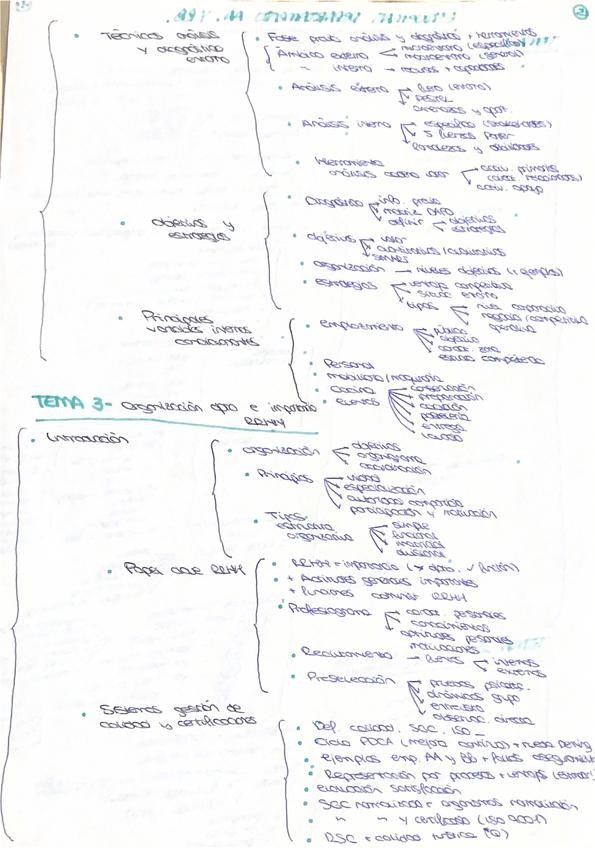 • Técnicas análisis y diagnóstico entorno
• Fase previa análisis y diagnóstico + herramientas
Análisis externo microentorno (específico)
macroentorno (general)
" interno → recursos + capacidades
• Análisis externo → (entorno)
PESTEL
amenazas y oport.
• Análisis interno específico (stakeholders)
5 fuerzas porter
fortalezas y debilidades
• Herramienta análisis cadena valor activ. primarias
activ. apoyo
• objetivos y estrategias
• Diagnóstico info. previa
matriz DAFO
definir objetivos
estrategias
• objetivos
cuantitativos/cualitativos
SMART
• organización → niveles objetivos (+ ejemplos)
• estrategias ventaja competitiva
tipos nivel corporativo
negocio/competitiva
operativa
• Principales variables internas condicionantes
• emplazamiento público
objetivo
caract. zona
estudio competencia
Personal
mobiliario/maquinaria
• Cocina conservación
• eventos preparación
cocción
pastelería
entrega
lavado
TEMA 3- Organización dpto e importancia RRHH
• Introducción
• organización objetivos
organigrama
coordinación
• Principios unidad
especialización
autoridad compartida
participación y motivación
• Tipos estructura organizativa simple
funcional
matricial
divisional
• Papel clave RRHH
• RRHH = importancia (→ dpto. y función)
• + Actividades generales importantes
• + funciones RRHH
• Profesiograma caract. personales
conocimientos
aptitudes personales
motivaciones
• Reclutamiento → fuentes internas
externas
• Preselección pruebas psicotéc.
dinámicas grupo
entrevista
observac. directa
• Sistemas gestión de calidad y certificaciones
• Def. calidad, SGC, ISO
• Ciclo PDCA (mejora continua) + rueda Deming
• ejemplos emp. AA y BB +
• Representación por procesos + ventajas
• evaluación satisfacción
• SGC normalizado + organismos normalización
• " " y certificado (ISO 9001)
• RSC + calidad turística (Q)